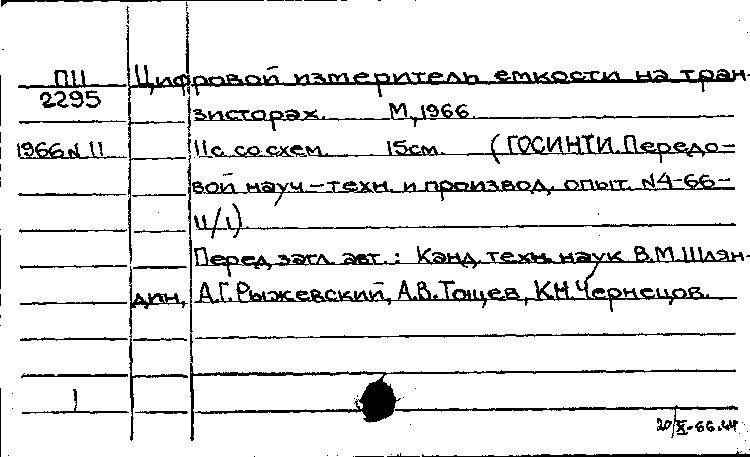 ПII Цифровой измеритель емкости на тран-
2295 зисторах. М, 1966.
1966 N 11 11с. со схем. 15см. (ГОСИНТИ. Передо-
вой науч-техн. и производ. опыт. N4-66-
11/1)
Перед загл. авт.: Канд. техн. наук В.М. Шлян-
дин, А.Г. Рыжевский, А.В. Тощев, К.Н. Чернецов.
1
20/X-66.